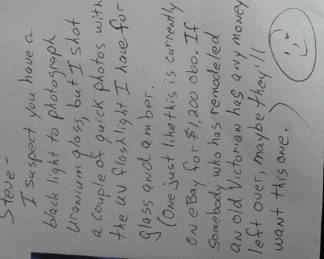 Steve-
I suspect you have a
black light to photograph
uranium glass, but I shot
a couple of quick photos with
the UV flashlight I have for
glass and amber.
(One just like this is currently
on eBay for $1,200 obo. If
somebody who has remodeled
an old Victorian has any money
left over, maybe they'll
want this one.)